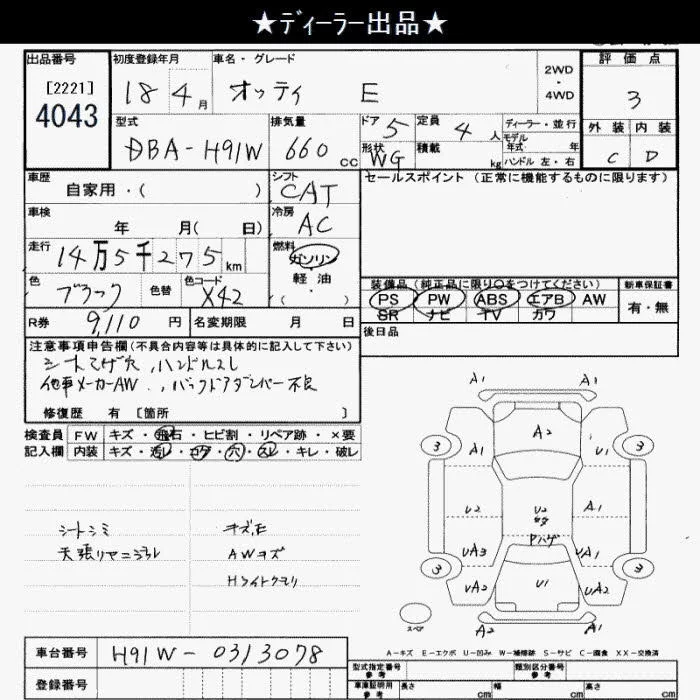 ★ディーラー出品★
出品番号
[2221]
4043
初度登録年月
18 4月
車名・グレード
オッティ E
2WD
・
4WD
評価点
3
外装 内装
C D
型式
DBA-H91W
排気量
660 cc
ドア 5
形状 WG
定員 4 人
積載 kg
ディーラー・並行
モデル年式 年
ハンドル 左・右
車歴
自家用・( )
シフト
CAT
セールスポイント (正常に機能するものに限ります)
車検
年 月( 日)
冷房
AC
走行
14万5千275km
燃料
ガソリン
軽油
( ・ )
色
ブラック
色替
色コード
X42
装備品(純正品に限り○をつけてください)
PS PW ABS エアB AW
SR ナビ TV カワ
新車保証書
有・無
R券 9,110 円
名変期限 月 日
後日品
注意事項申告欄(不具合内容等は具体的に記入して下さい)
シートコゲ穴、ハンドルスレ
他車メーカーAW、バックドアダンパー不良
修復歴 有 [箇所 ]
検査員
記入欄
FW キズ・飛石・ヒビ割・リペア跡・×要
内装 キズ・汚レ・コゲ・穴・スレ・キレ・破レ
シートシミ
天張リヤニヨゴレ
キズ
AWキズ
Hライトクモリ
A1 A1
3 A2 3
A1 U1
U2 U2 A1
Pハゲ
UA3 UA1
3 3
UA2 U1 UA2
スペア
A2 A2
A-キズ E-エクボ U-凹み W-補修跡 S-サビ C-腐食 XX-交換済
車台番号 H91W-0313078
登録番号
型式指定番号
参考
類別区分番号
参考
車庫証明用
参考
長さ cm 幅 cm 高さ cm